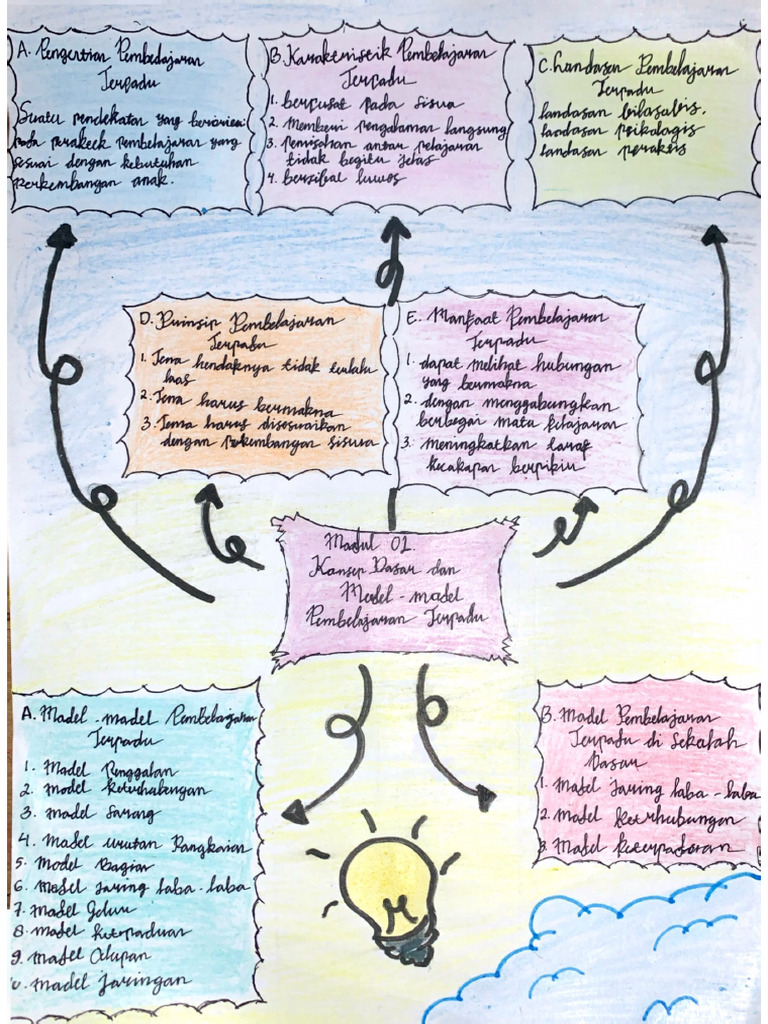 A. Pengertian Pembelajaran
Terpadu
Suatu pendekatan yang berorientasi
pada perakeek pembelajaran yang
sesuai dengan kebutuhan
perkembangan anak.
B. Karakteristik Pembelajaran
Terpadu
1. berpusat pada siswa
2. Memberi pengalaman langsung
3. pemisahan antar pelajaran
tidak begitu jelas
4. bersifat luwes
C. Landasan Pembelajaran
Terpadu
landasan filosofis.
landasan psikologis
landasan peraktis
D. Prinsip Pembelajaran
Terpadu
1. Tema hendaknya tidak terlalu
luas
2. Tema harus bermakna
3. Tema harus disesuaikan
dengan perkembangan siswa
E. Manfaat Pembelajaran
Terpadu
1. dapat melihat hubungan
yang bermakna
2. dengan menggabungkan
berbagai mata pelajaran
3. meningkatkan taraf
kecakapan berpikir
Modul 01.
Konsep Dasar dan
Model - model
Pembelajaran Terpadu
A. Model - model Pembelajaran
Terpadu
1. Model Penggalan
2. Model keterhubungan
3. model Sarang
4. Model urutan Rangkaian
5. Model Bagian
6. Model Jaring laba - laba
7. Model Galur
8. Model keterpaduan
9. Model Celupan
10. model Jaringan
B. Model Pembelajaran
Terpadu di Sekolah
Dasar
1. Model Jaring laba - laba
2. Model keterhubungan
3. Model keterpaduan